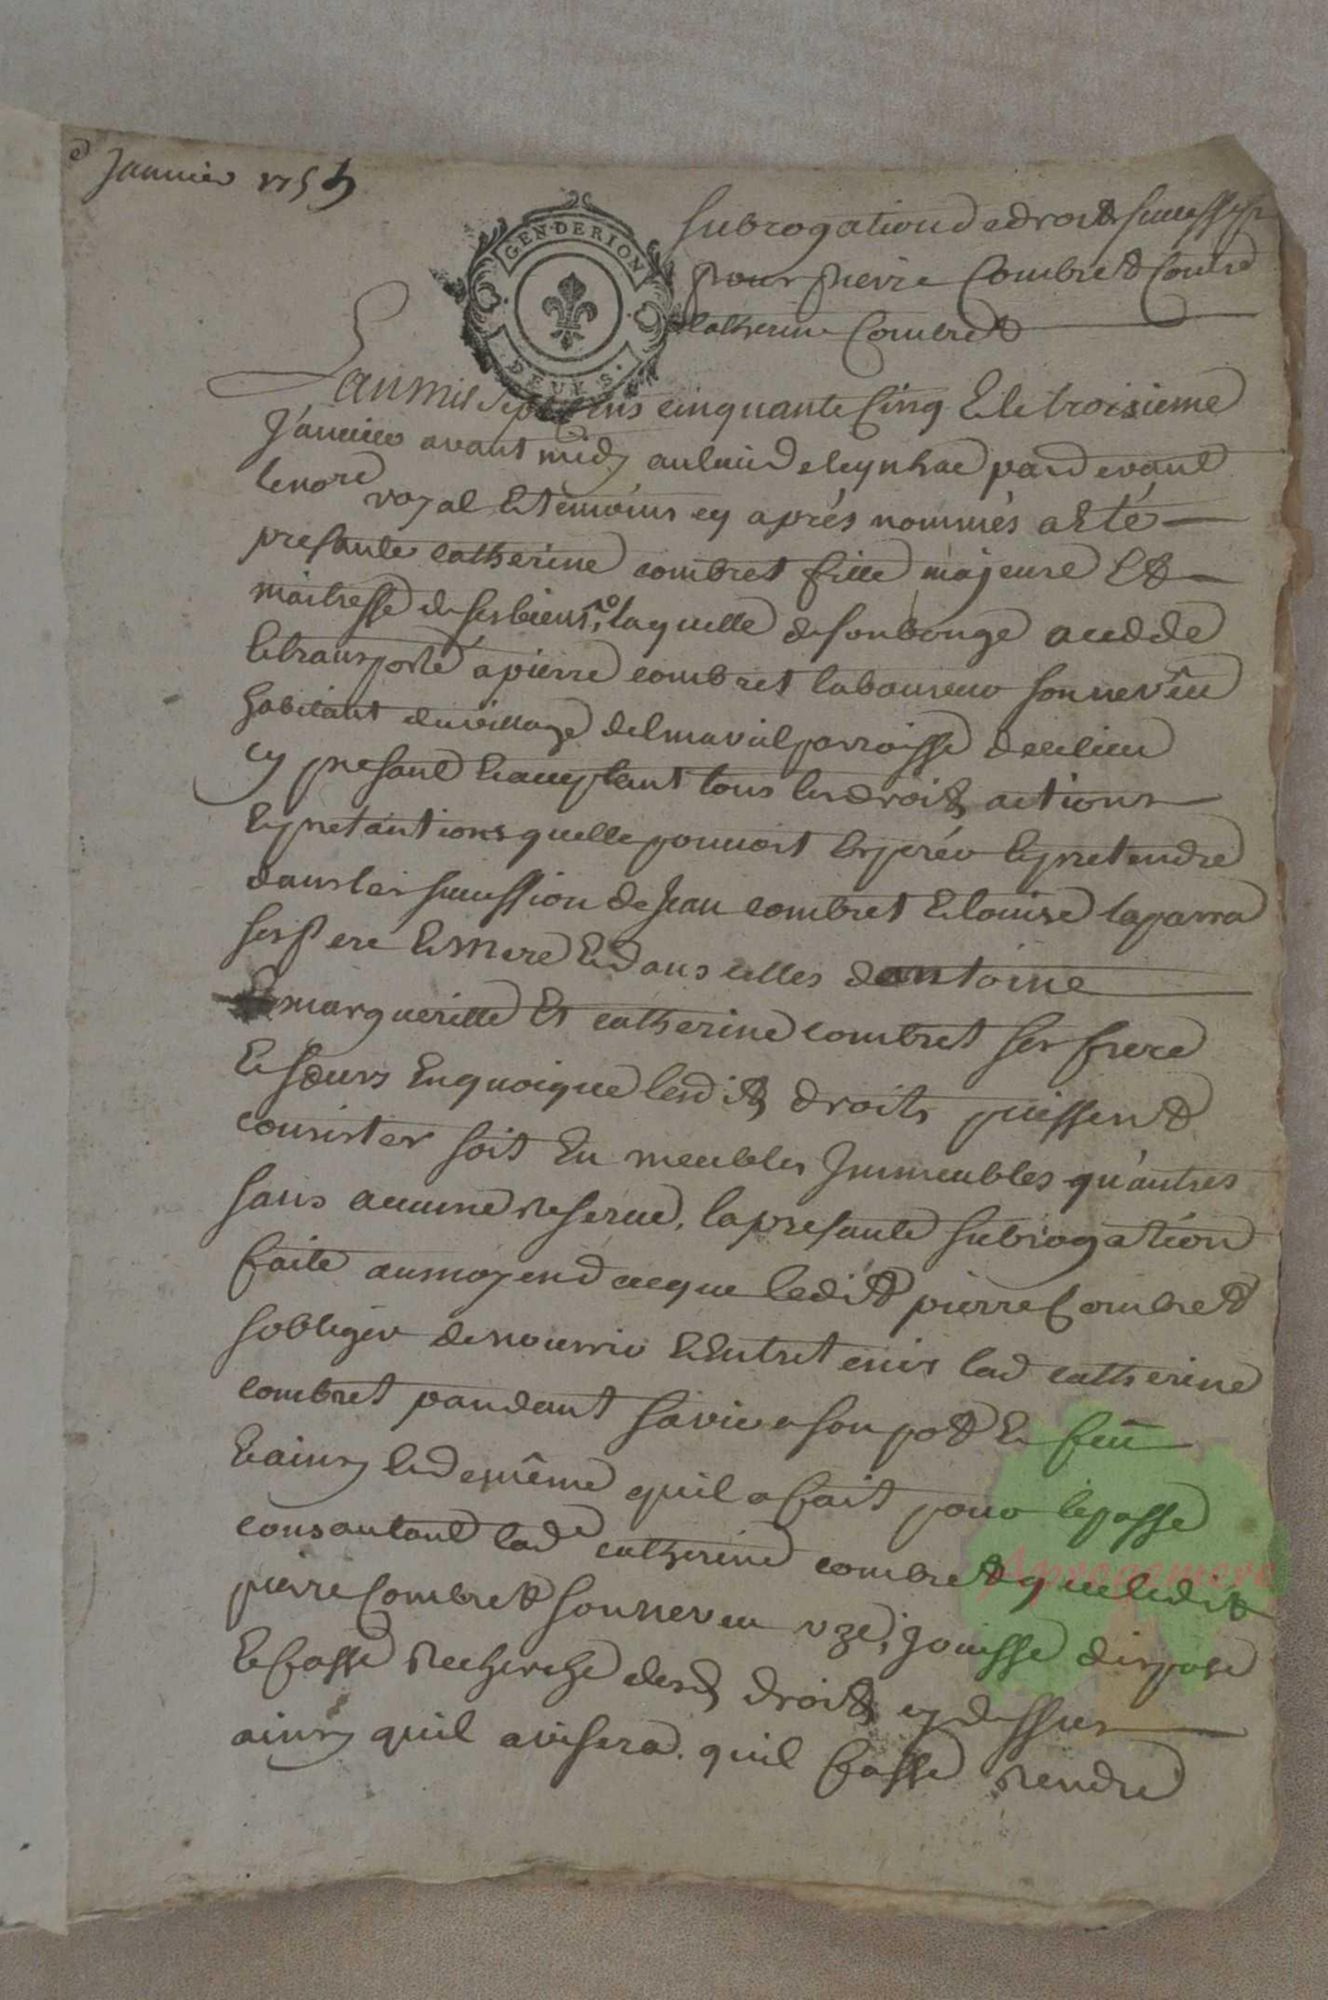 Janvier 1755
Subrogation de droits successifs
pour pierre Combret Contre
Catherine Combret
GEN DE RION
DEUX S.
L'an mil sept cens cinquante Cinq & le troisieme
Janvier avant midy au lieu de leynhac pardevant
le nore royal & temoins cy aprés nommés a eté
presante catherine combret fille majeure &
maitresse de ses biens, laquelle de son bon gré a cedde
& transporté a pierre combret laboureur son neveu
habitant du village delmavial parroisse de ce lieu
cy presant & acceptant tous les droits actions
& pretantions quelle pouvoit esperér & pretendre
dans les succession de Jean combret & louise laparra
ses pere & mere & dans celles dantoine
margueritte & catherine combret ses frere
& sœurs En quoique lesdits droits puissent
consister soit En meubles Immeubles qu'autres
sans aucune reserve, la presante subrogation
faite au moyen de ce que ledit pierre Combret
sobliger de nourrir & Entretenir lad catherine
combret pandant sa vie a son pot & feu
& ainsy & de même quil a fait pour le passé
consantant lade catherine combret que ledit
pierre Combret son neveu uze, jouisse dispose
& fasse recherche desds droits cy dessus
ainsy quil avisera. quil fasse rendre
Aprogemere